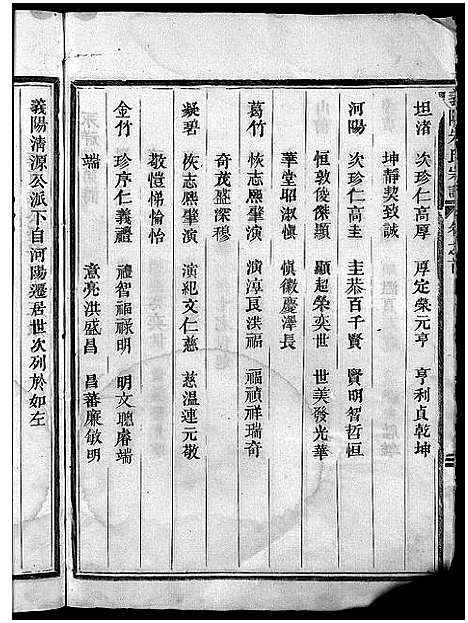 義陽朱氏宗譜 卷之首
坦渚 次珍仁高厚 厚定榮元亨 亨利貞乾坤
坤靜契致誠
河陽 次珍仁高圭 圭恭百千賢 賢明智哲恒
恒敦俊傑顯 顯超榮奕世 世美發光華
華堂昭淑慎 慎徽慶澤長
葛竹 恢志熈肇演 演淳良洪福 福禎祥瑞奇
奇茂盛深穆
凝碧 恢志熈肇演 演紀文仁慈 慈溫連元敬
敬愷悌愉怡
金竹 珍序仁義禮 禮智福祿明 明文聰睿端
端 意亮洪盛昌 昌蕃廉敏明
義陽清源公派下自河陽遷居世次列於如左